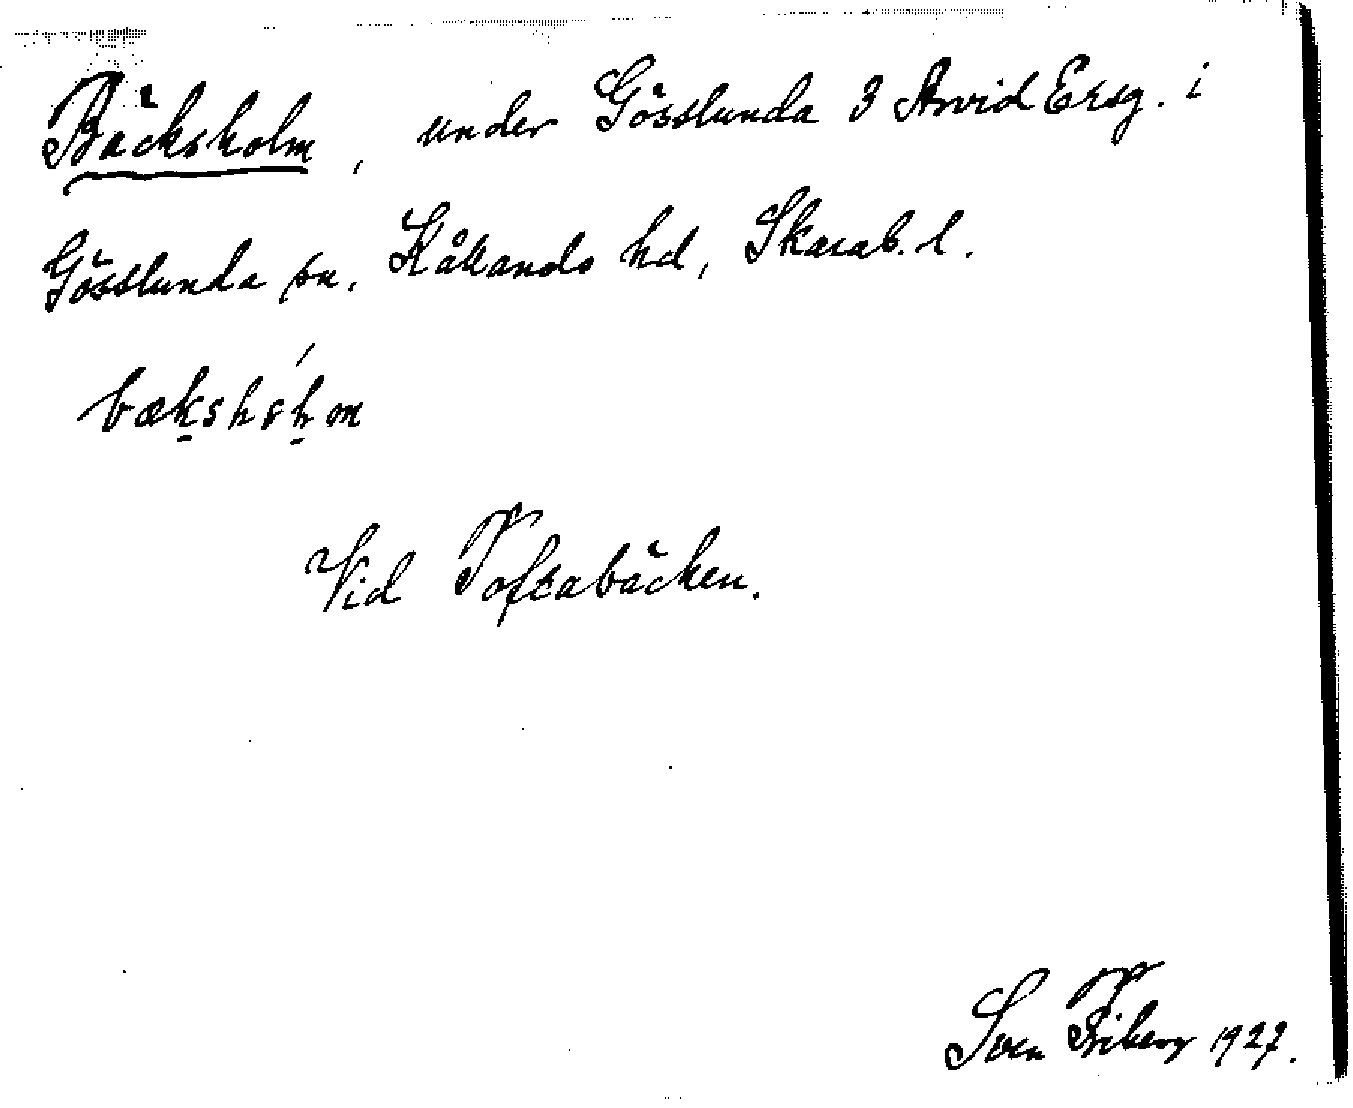 Bäcksholm, under Gösslunda 3 Arvid Ersg. i
Gösslunda sn. Kållands hd, Skarab. l.
Vid Toftabäcken.
Sven Friberg 1927.